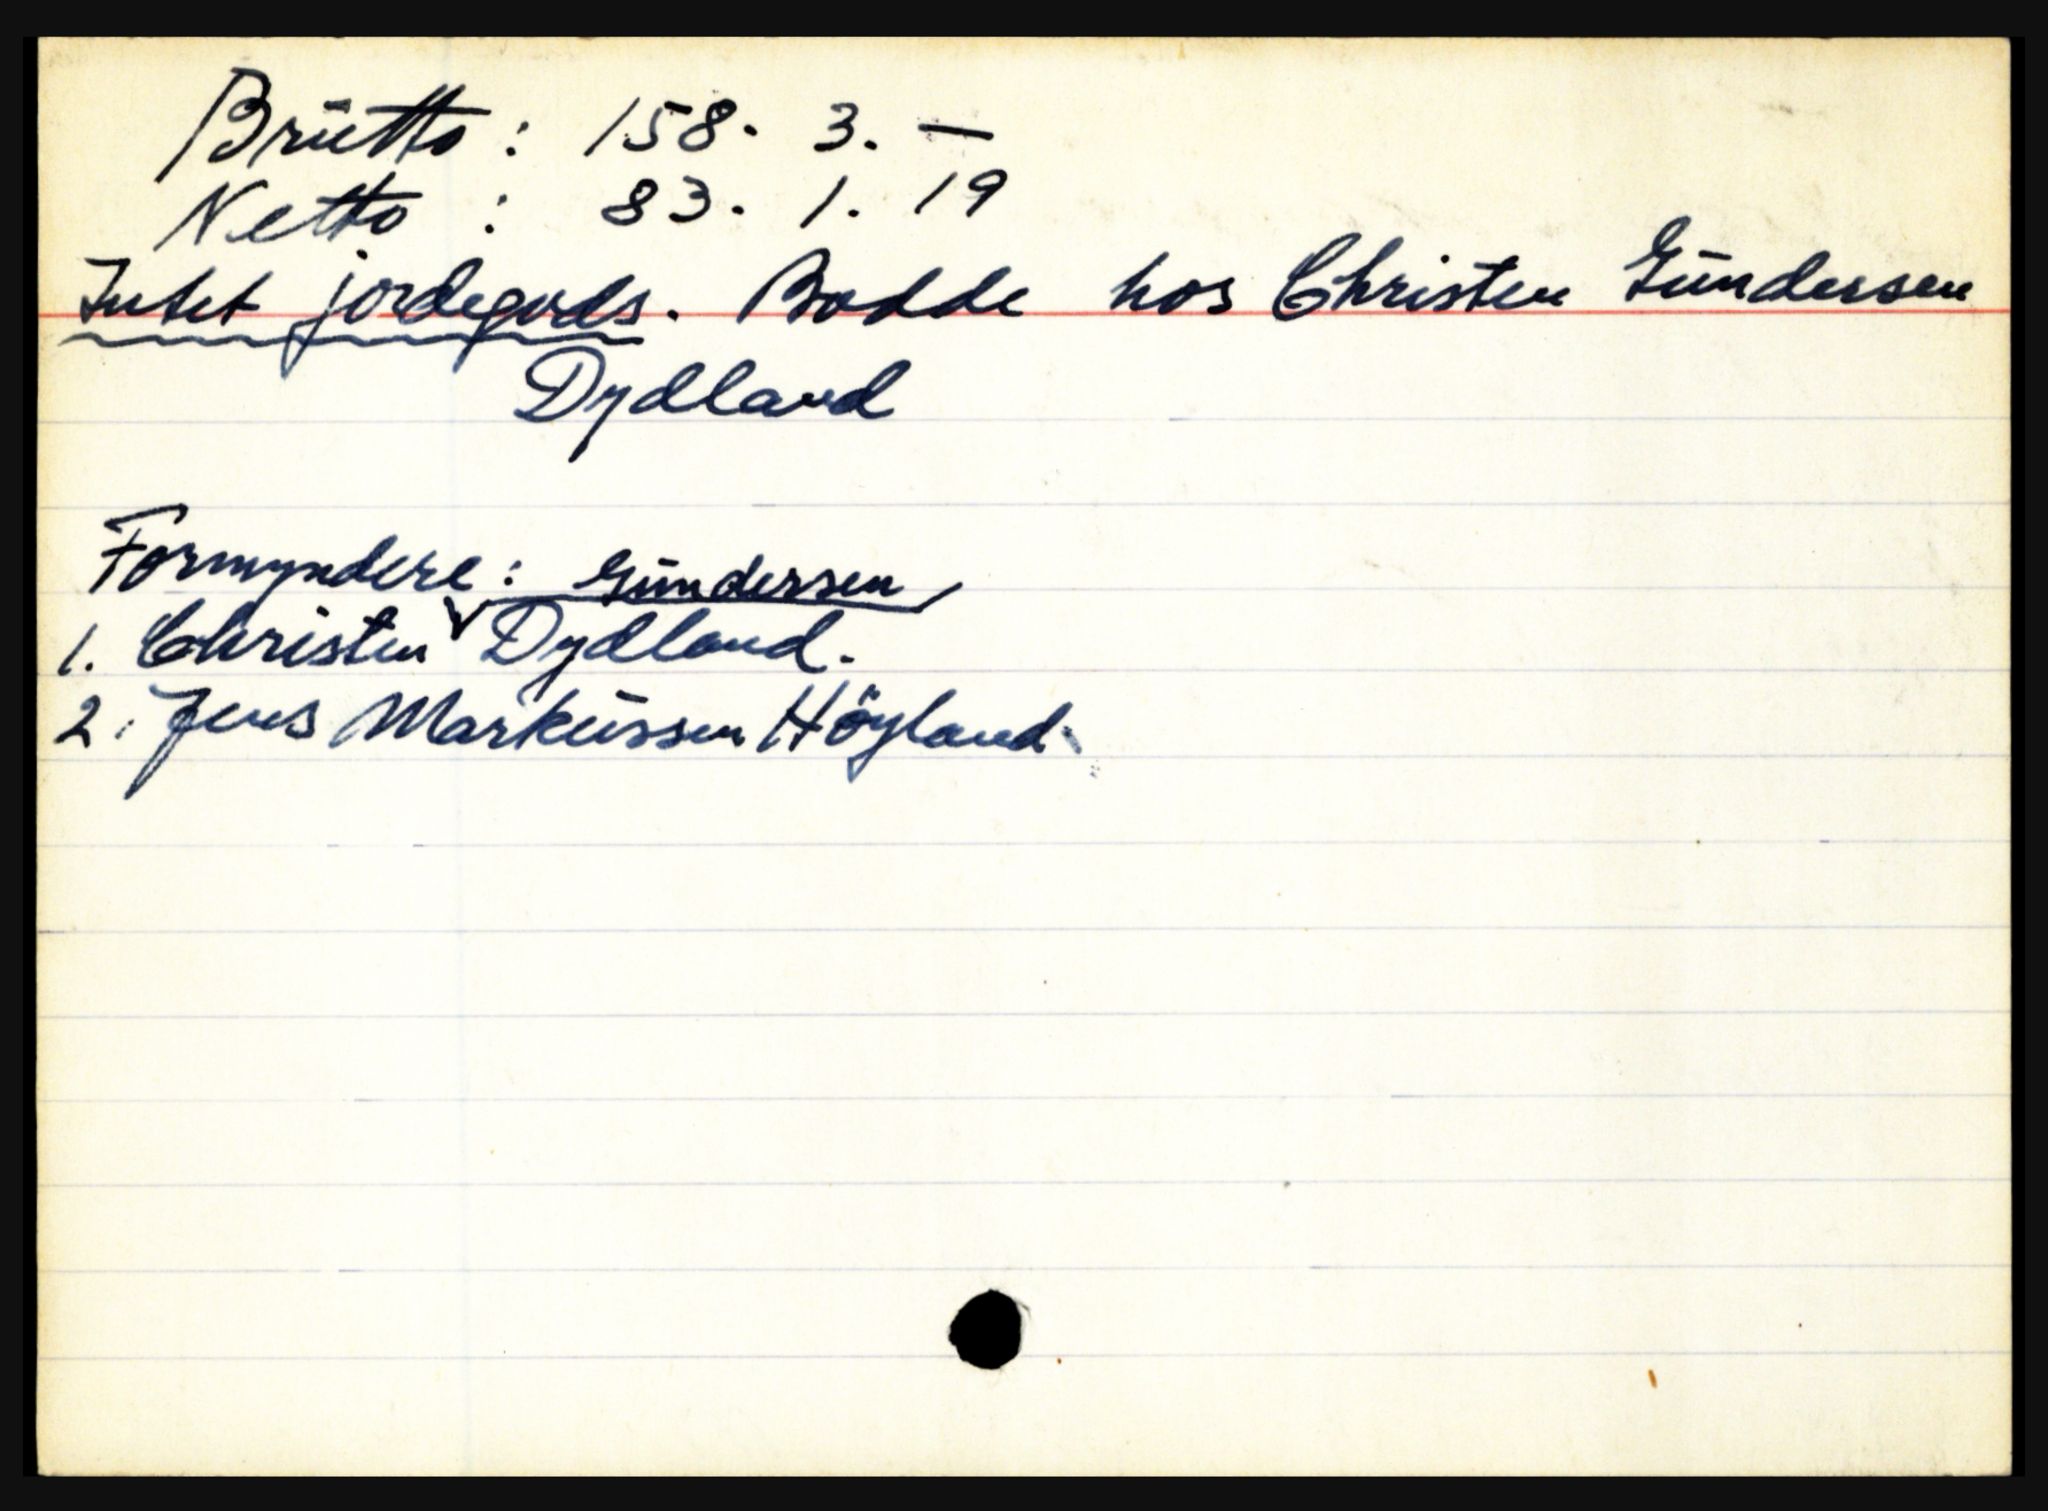 Brutto : 158. 3. —
Netto : 83. 1. 19
Intet jordegods. Bodde hos Christen Gundersen
Dydland
Formyndere: Gundersen
1. Christen Dydland.
2. Jens Markussen Höyland.